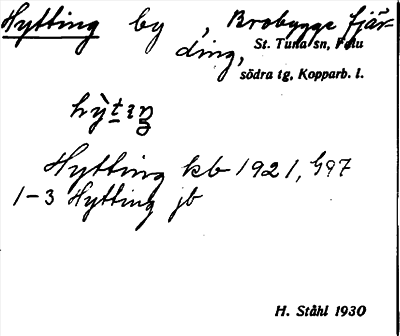 Hytting by, Brobygge fjär-
ding, St. Tuna sn, Falu
södra tg, Kopparb. l.
hỳtıŋ
Hytting kb 1921, 597
1-3 Hytting jb
H. Ståhl 1930